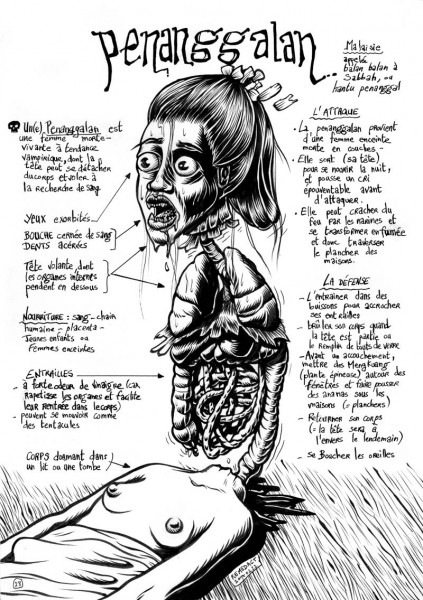 Penanggalan...
Malaisie
appelé
balan balan à
Sabbah, ou
hantu penanggal
Un(e) Penanggalan est
une femme morte-
vivante à tendance
vampirique, dont la
tête peut se détacher
du corps et voler à
la recherche de sang.
YEUX exorbités
BOUCHE cernée de sang
DENTS acérées
Tête volante, dont
les organes internes
pendent en dessous
NOURRITURE : sang - chair
humaine - placenta -
Jeunes enfants ou
Femmes enceintes
ENTRAILLES
- à forte odeur de vinaigre (car
rapetisse les organes et facilite
leur rentrée dans le corps)
- peuvent se mouvoir comme
des tentacules
CORPS dormant dans
un lit ou une tombe
L'ATTAQUE
- La penanggalan provient
d'une femme enceinte
morte en couches -
- Elle sort (sa tête)
pour se nourrir la nuit,
et pousse un cri
épouvantable avant
d'attaquer.
- Elle peut cracher du
feu par les narines et
se transformer en fumée
et donc traverser
le plancher des
maisons.
LA DÉFENSE
- L'entrainer dans des
buissons pour accrocher
ses entrailles
- brûler son corps quand
la tête est partie ou
le remplir de bouts de verre
- Avant un accouchement,
mettre des Mengkuang
(plante épineuse) autour des
fenêtres et faire pousser
des ananas sous les
maisons (= planchers)
- Retourner son corps
(= la tête sera à
l'envers le lendemain)
- Se Boucher les oreilles